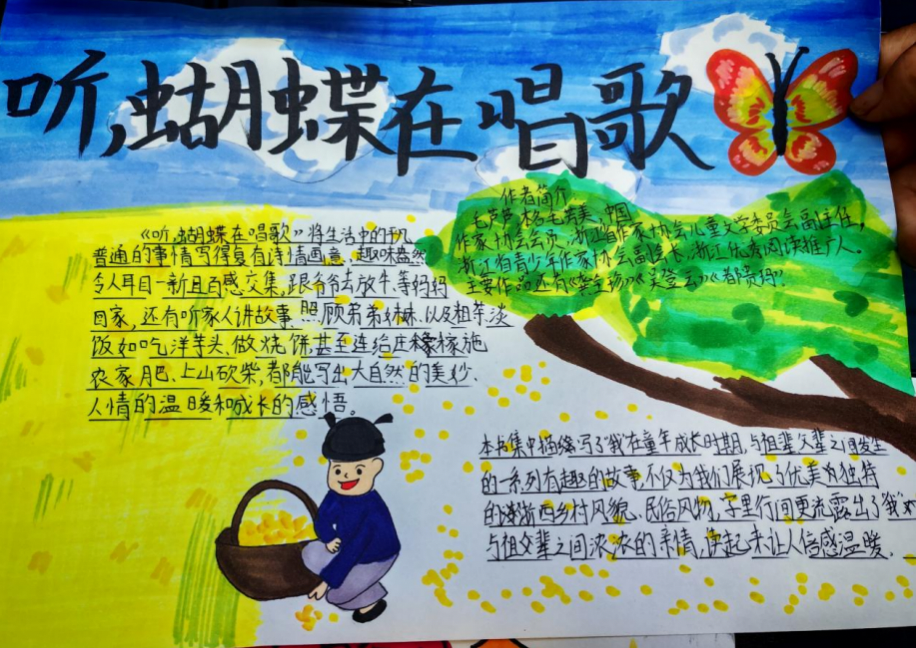 听,蝴蝶在唱歌
《听,蝴蝶在唱歌》将生活中的平凡
普通的事情写得复有诗情画意、趣味盎然
令人耳目一新且百感交集,跟爷爷去放牛、等妈妈
回家,还有听家人讲故事、照顾弟弟妹妹,以及粗茶淡
饭如吃洋芋头、做烧饼,甚至连给庄稼施
农家肥、上山砍柴,都能写出大自然的美妙、
人情的温暖和成长的感悟。
作者简介
毛芦芦,本名毛芳美,中国
作家协会会员,浙江省作家协会儿童文学委员会副主任,
浙江省青少年作家协会副会长,浙江优秀阅读推广人。
主要作品还有《 》《 云》《 》
本书集中描绘写了"我"在童年成长时期,与祖辈父辈之间发生
的一系列有趣的故事,不仅为我们展现了优美为独特
的浙西乡村风貌、民俗风物,字里行间更流露出了"我"对
与祖父辈之间浓浓的亲情,读起来让人倍感温暖.